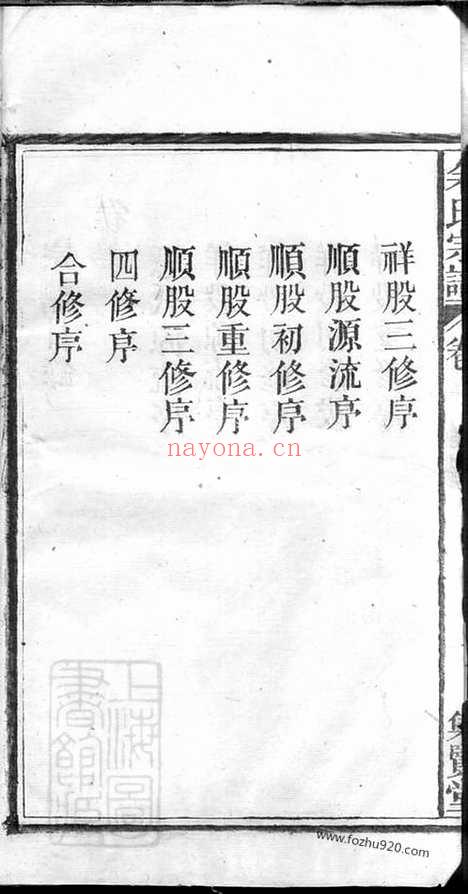 祥股三修序
順股源流序
順股初修序
順股重修序
順股三修序
四修序
合修序
氏宗譜
卷
集賢堂
上海圖書館藏
nayona.cn
www.fozhu920.com